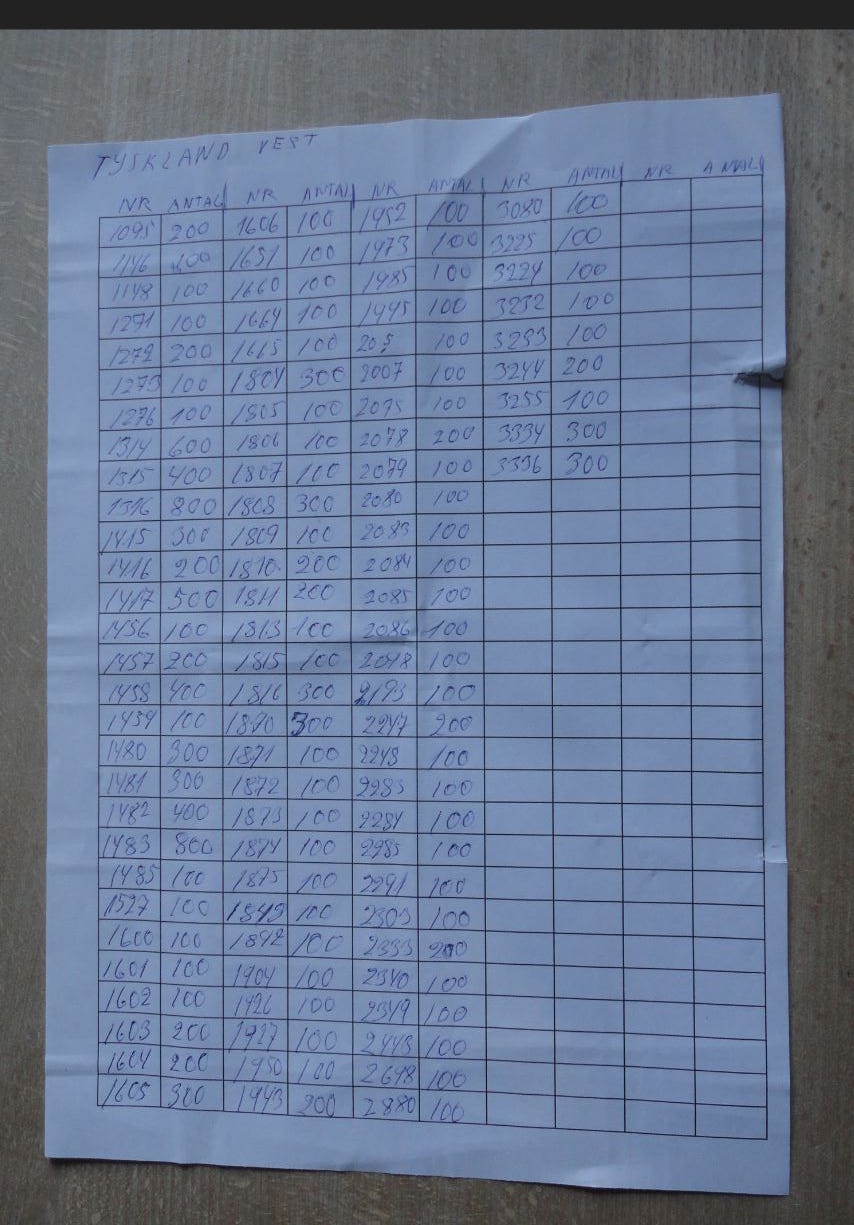 TYSKLAND VEST
NR ANTAL NR ANTAL NR ANTAL NR ANTAL NR ANTAL
1095 200 1606 100 1952 100 3080 100
1146 200 1651 100 1973 100 3225 100
1148 100 1660 100 1985 100 3224 100
1271 100 1664 100 1995 100 3232 100
1272 200 1665 100 100 3233 100
1273 100 1804 300 2007 100 3244 200
1276 100 1805 100 2075 100 3255 100
1314 600 1806 100 2078 200 3334 300
1315 400 1807 100 2079 100 3336 300
1316 800 1808 300 2080 100
1415 300 1809 100 2083 100
1416 200 1810 200 2084 100
1417 500 1811 200 2085 100
1456 100 1813 100 2086 100
1457 200 1815 100 100
1458 400 1816 300 2193 100
100 1870 300 2247 200
1480 300 1871 100 2248 100
1481 300 1872 100 2283 100
1482 400 1873 100 2284 100
1483 800 1874 100 2285 100
1485 100 1875 100 2291 100
1527 100 100 2303 100
1600 100 1892 100 2333 200
1601 100 1904 100 2340 100
1602 100 1926 100 2349 100
1603 200 1927 100 2448 100
1604 200 1930 100 2648 100
1605 300 1943 200 2880 100